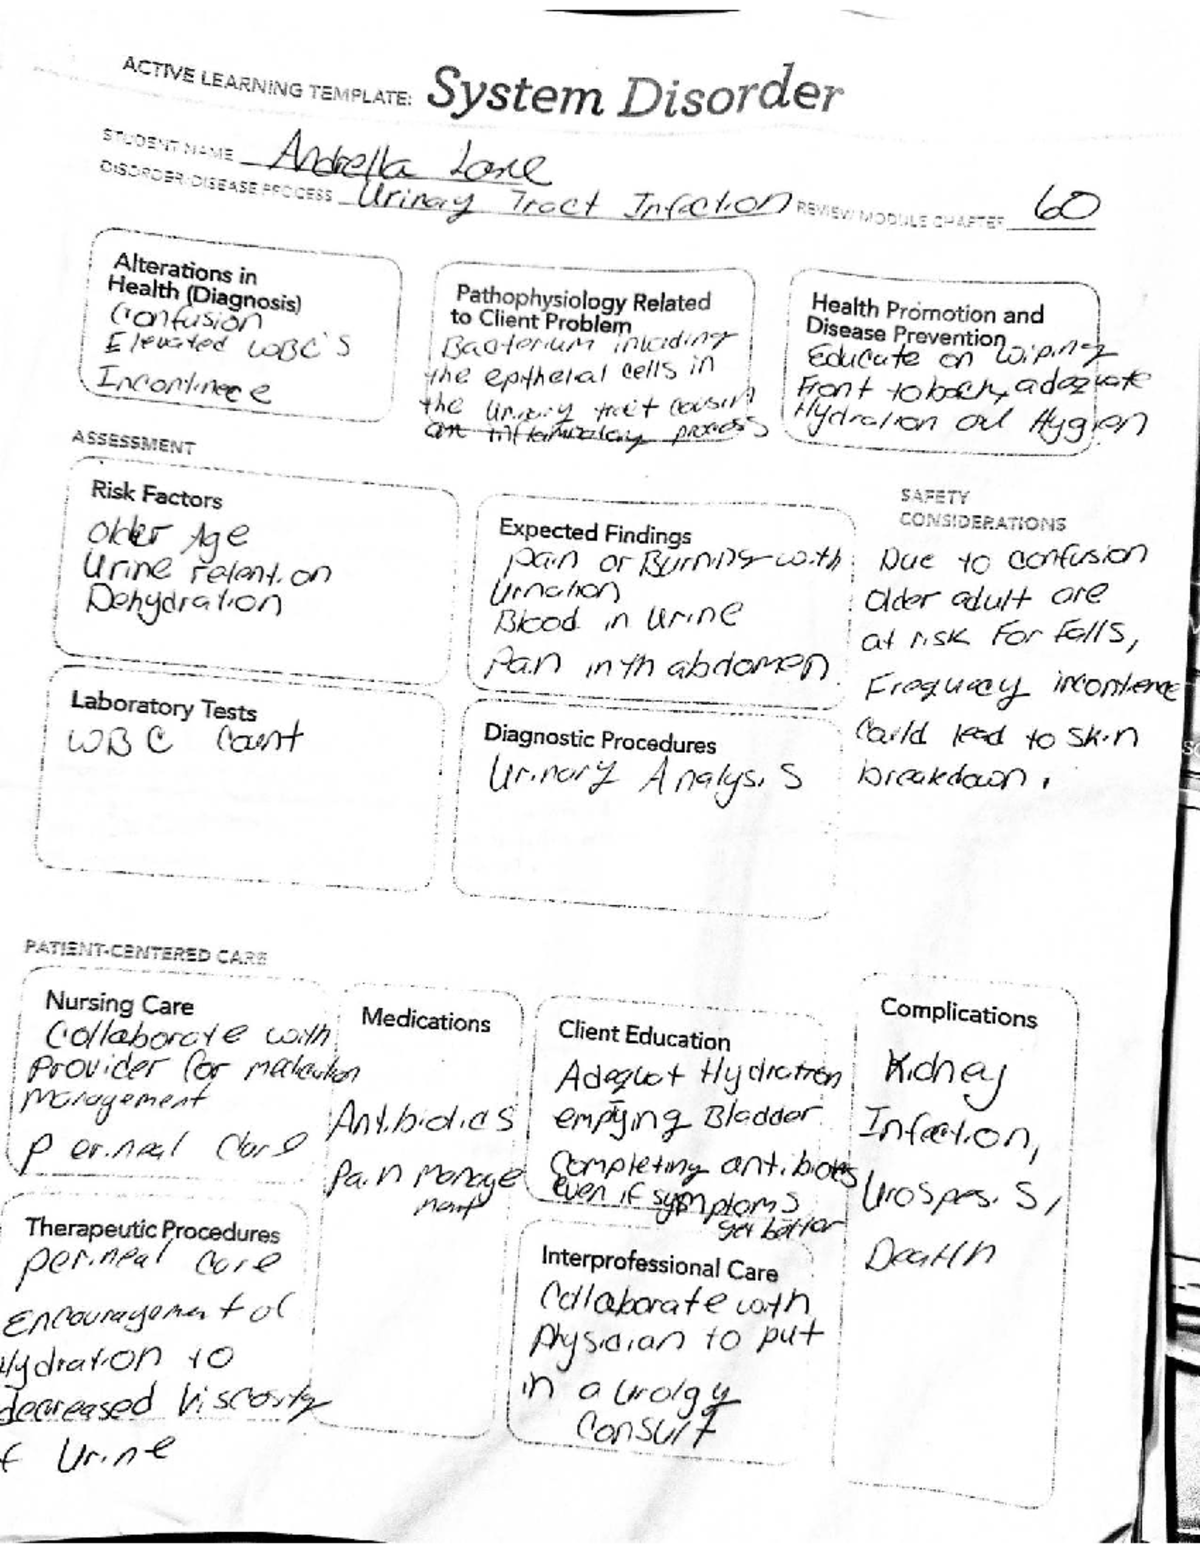 ACTIVE LEARNING TEMPLATE: System Disorder
STUDENT NAME Andrella Lane
DISORDER/DISEASE PROCESS Urinary Tract Infection REVIEW MODULE CHAPTER 60
Alterations in
Health (Diagnosis)
Confusion
Elevated WBC'S
Incontinece
Pathophysiology Related
to Client Problem
Bacterium invading
the epithelal cells in
the urinary tract causin
an inflammatory process
Health Promotion and
Disease Prevention
Educate on wiping
Front to back, adequate
Hydration and Hygien
ASSESSMENT
Risk Factors
Older Age
Urine retention
Dehydration
Expected Findings
Pain or Burning with
Urination
Blood in urine
Pain in th abdomen
SAFETY
CONSIDERATIONS
Due to confusion
older adult are
at risk For Falls,
Frequency incontience
Could lead to skin
breakdown.
Laboratory Tests
WBC Count
Diagnostic Procedures
Urinary Analysis
PATIENT-CENTERED CARE
Nursing Care
Collaborate with
Provider for
management
Perineal Care
Medications
Antibiotics
Pain Manage
ment
Client Education
Adequat Hydration
emptying Bladder
Completing antibiotes
even if symptoms
get better
Complications
Kidney
Infection,
Urospesis,
Death
Therapeutic Procedures
perineal care
Encouragement of
Hydration to
decreased Viscosity
of Urine
Interprofessional Care
Collaborate with
Physician to put
in a urolgy
Consult